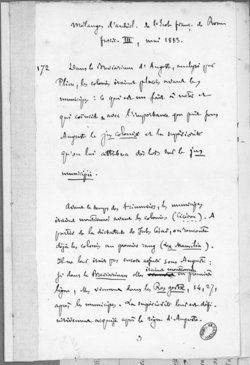 Mélanges d'archéol. de l'Ecole franç. de Rome
fascic. III, mai 1883.
172 Dans le Breviarium d'Auguste, analysé par
Pline, les colonies étaient placées avant les
municipes : ce qui est un fait à noter et
qui coïncide avec l'importance que prit sous
Auguste le jus coloniae et la supériorité
qu'on lui attribua dès lors sur le jus
municipii.
Avant le temps des triumvirs, les municipes
étaient mentionnés avant les colonies (Cicéron). A
partir de la dictature de Jules César, on rencontre
déjà les colonies au premier rang (lex Mamilia).
Il ne lui était pas encore assuré sous Auguste :
si dans le Breviarium elles étaient mentionnées en première
ligne, elles viennent dans les Res gestae, 14, 27,
après les municipes. La supériorité leur est défi-
nitivement acquise après le règne d'Auguste.